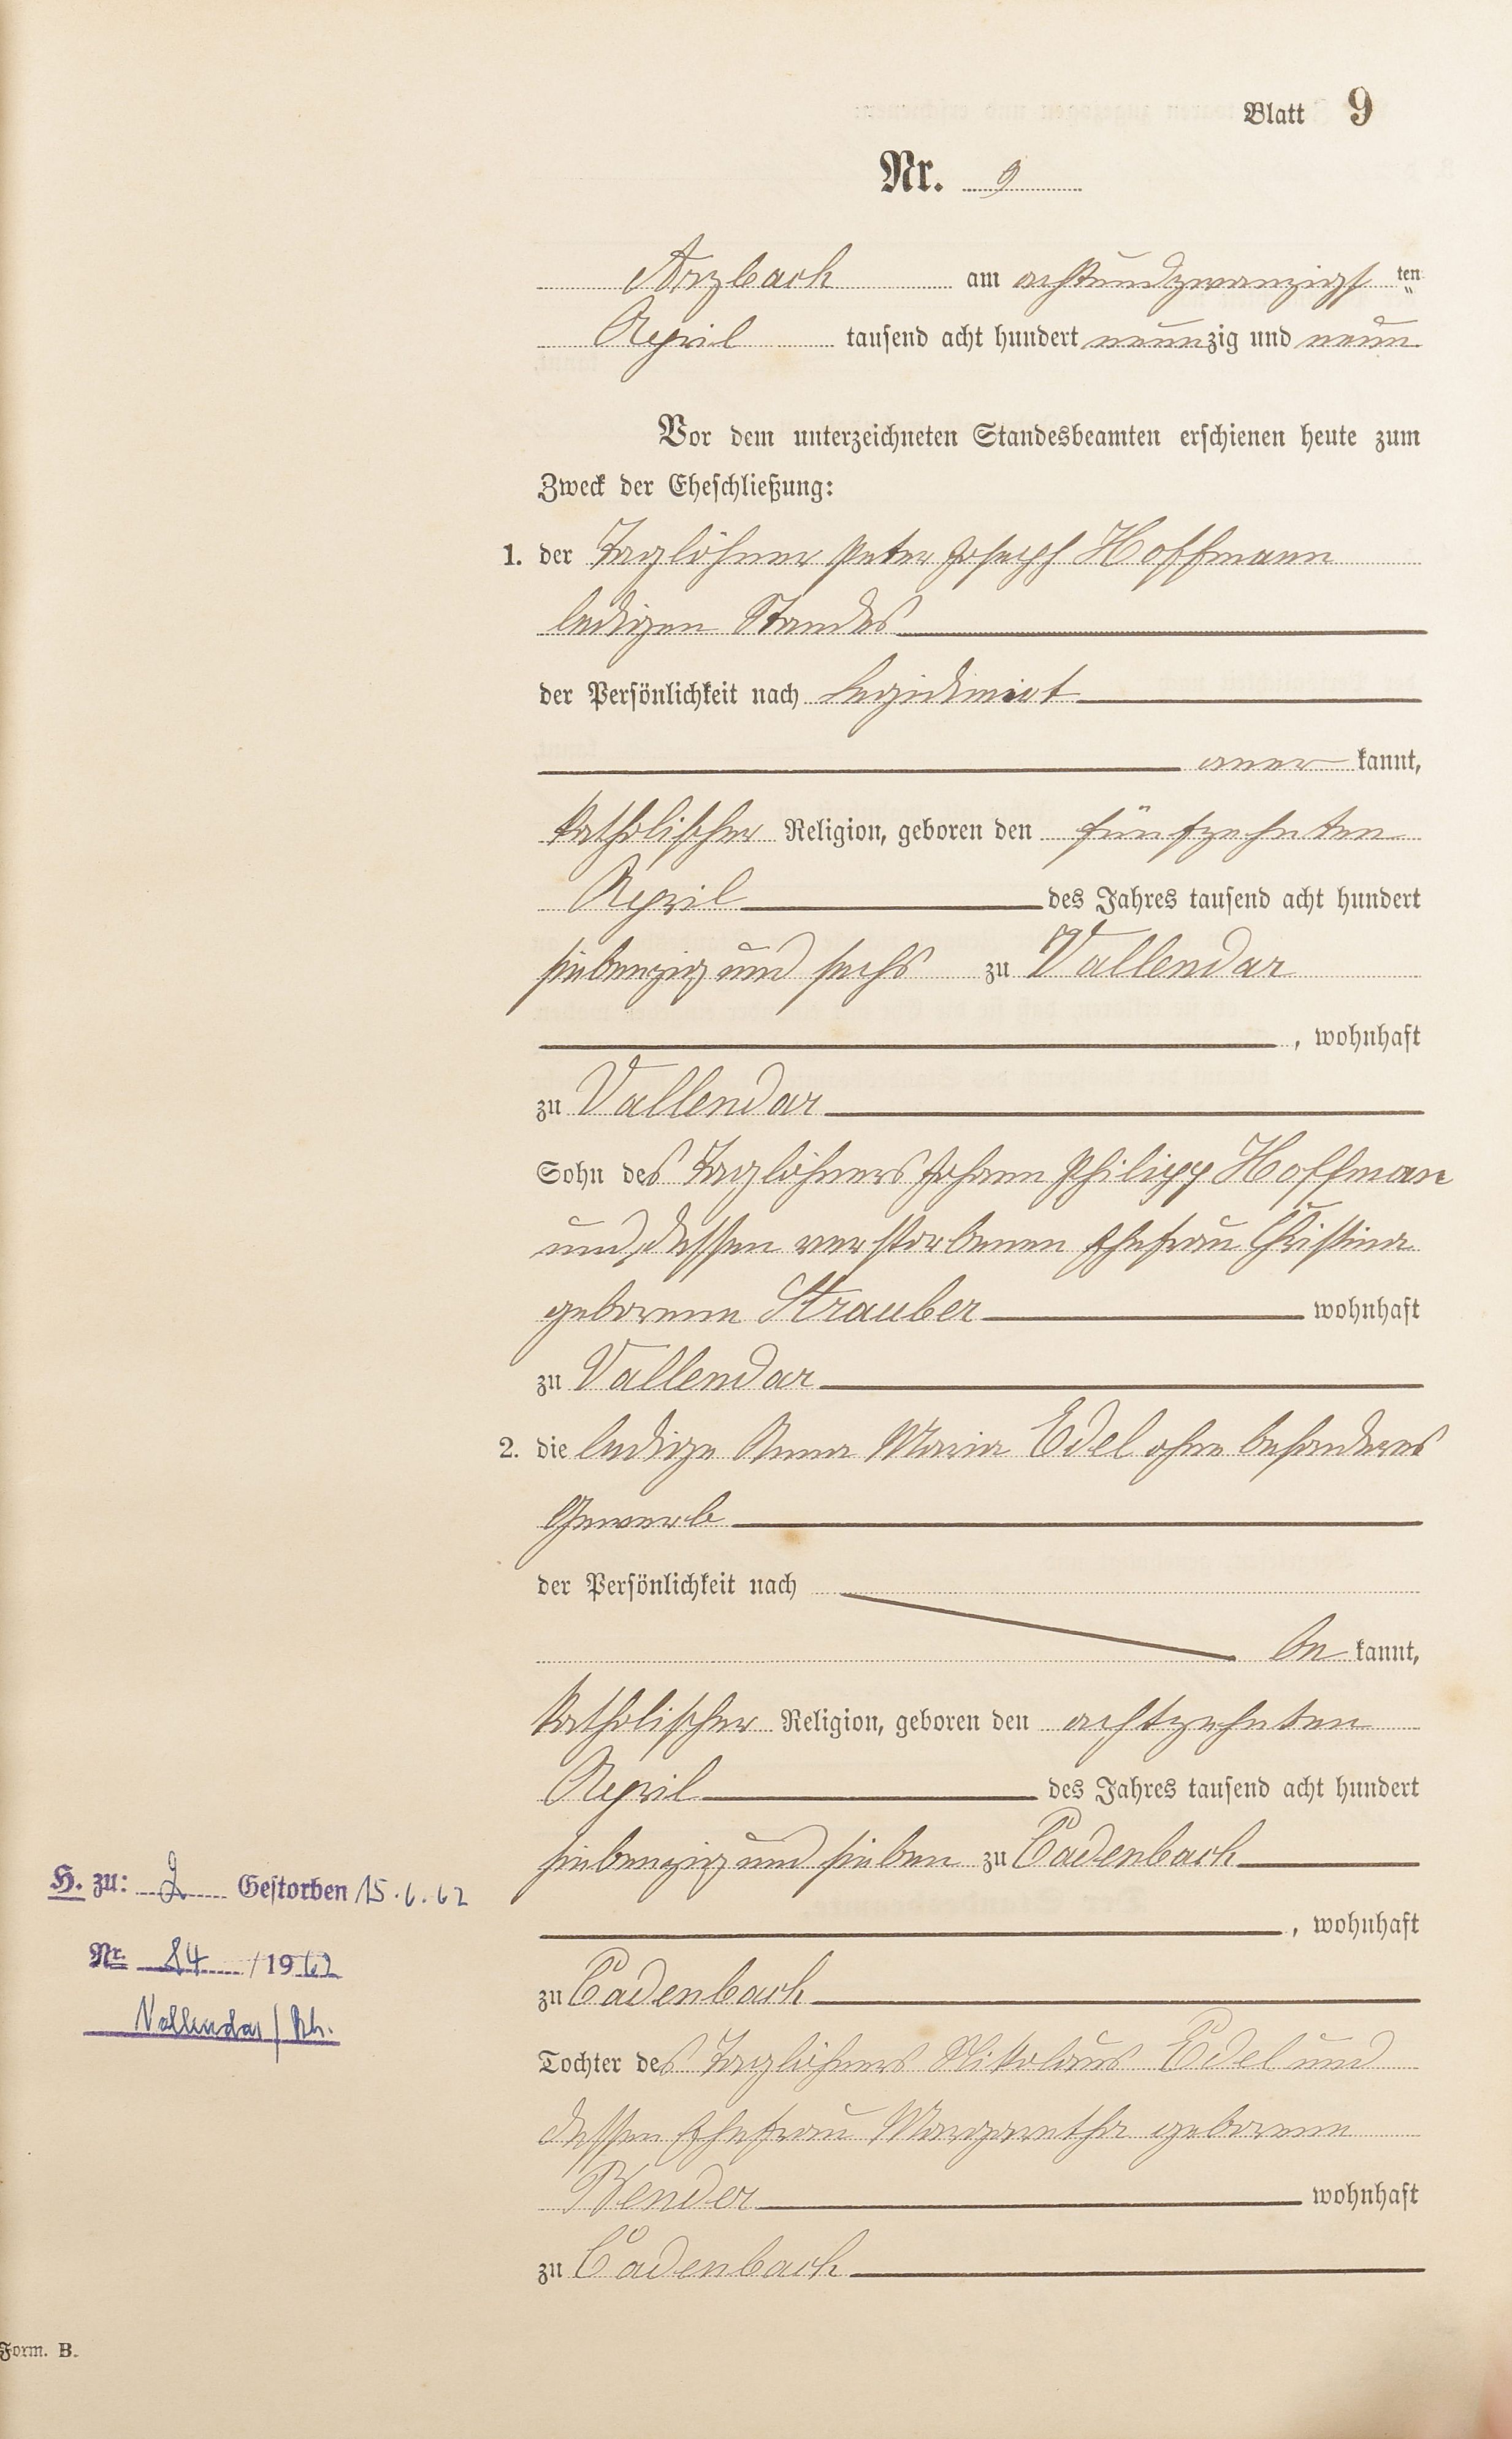 Blatt 9
Nr. 9
Arzbach am achtundzwanzigst ten
April tausend acht hundert neunzig und neun
Vor dem unterzeichneten Standesbeamten erschienen heute zum
Zweck der Eheschließung:
1. der Taglöhner Peter Joseph Hoffmann
ledigen Standes
der Persönlichkeit nach legidimiert
aner kannt,
katholischer Religion, geboren den fünfzehnten
April des Jahres tausend acht hundert
siebenzig und sechs zu Vallendar
, wohnhaft
zu Vallendar
Sohn des Taglöhners Johann Philipp Hoffmann
und dessen verstorbenen Ehefrau Christina
geborenen Strauber wohnhaft
zu Vallendar
2. die ledige Anna Maria Edel ohne besonderes
Gewerb
der Persönlichkeit nach
be kannt,
katholischer Religion, geboren den achtzehnten
April des Jahres tausend acht hundert
siebenzig und sieben zu Cadenbach
, wohnhaft
zu Cadenbach
Tochter des Taglöhners Nikolaus Edel und
dessen Ehefrau Margaretha geborene
Bender wohnhaft
zu Cadenbach
H. zu: 2 Gestorben 15.6.62
Nr. 84 / 1962
Vallendar / Rh.
Form. B.